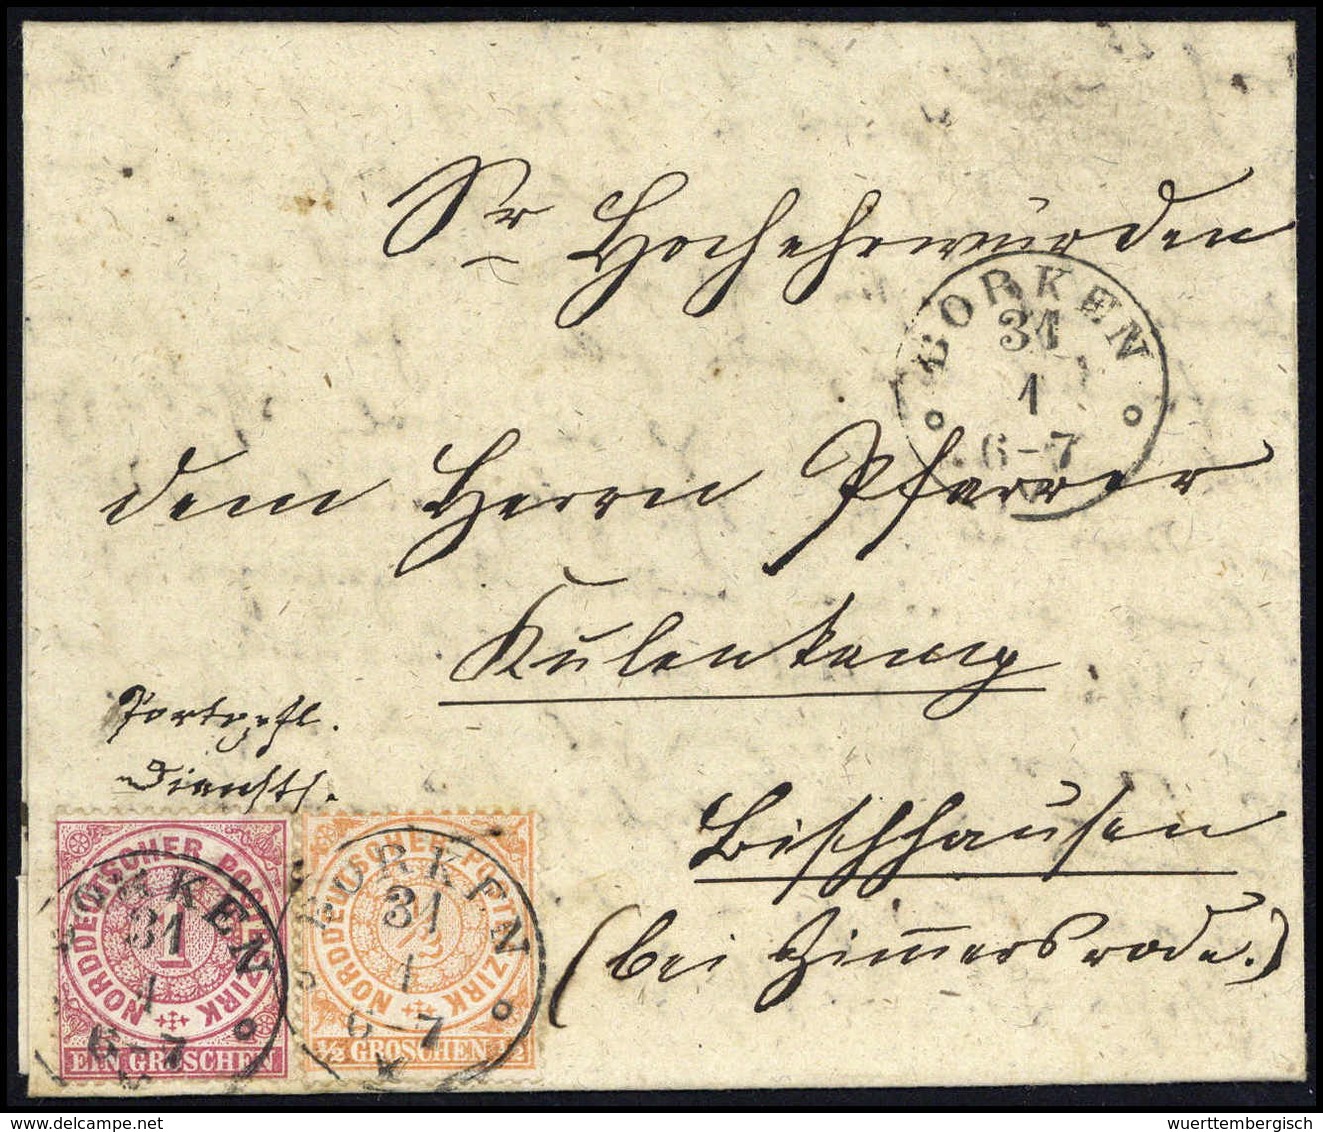 Sr Hochehrwürden
BORKEN
31
1
6-7
dem Herrn Pfarrer
Kulenkamp
Portopfl.
Diensts.
Bischhausen
(bei Zimmersrode.)
NORDDEUTSCHER POSTBEZIRK
1
EIN GROSCHEN
BORKEN
31
1
6-7
NORDDEUTSCHER POSTBEZIRK
1/2
1/2 GROSCHEN 1/2
BORKEN
31
1
6-7
wuerttembergisch